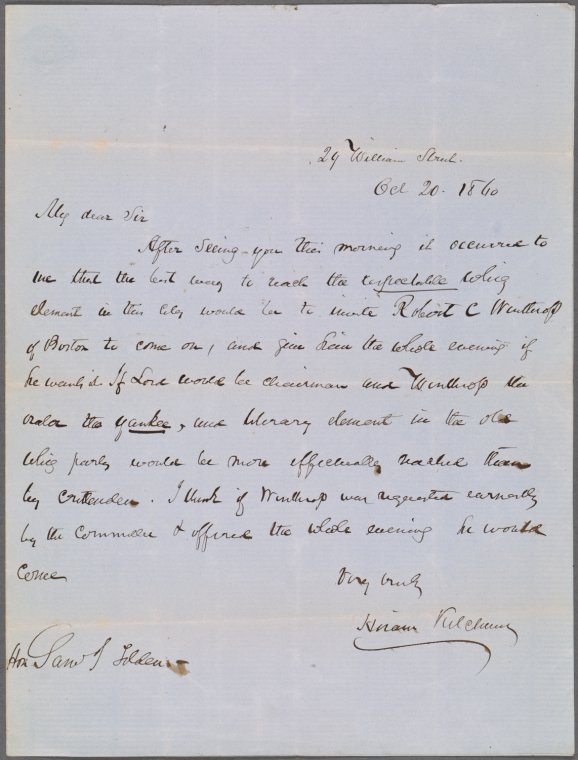 29 William Street.
Oct 20. 1860
My dear Sir
After seeing you this morning it occurred to
me that the best way to reach the respectable whig
element in this City would be to invite Robert C Winthrop
of Boston to come on, and give him the whole evening if
he wants it. If Lord would be chairman and Winthrop the
orator the Yankee, and literary element in the old
whig party would be more effectually reached than
by Crittenden. I think if Winthrop was requested earnestly
by the Committee & offered the whole evening he would
come
Very truly
Hiram Ketchum
Hon Saml J Tilden